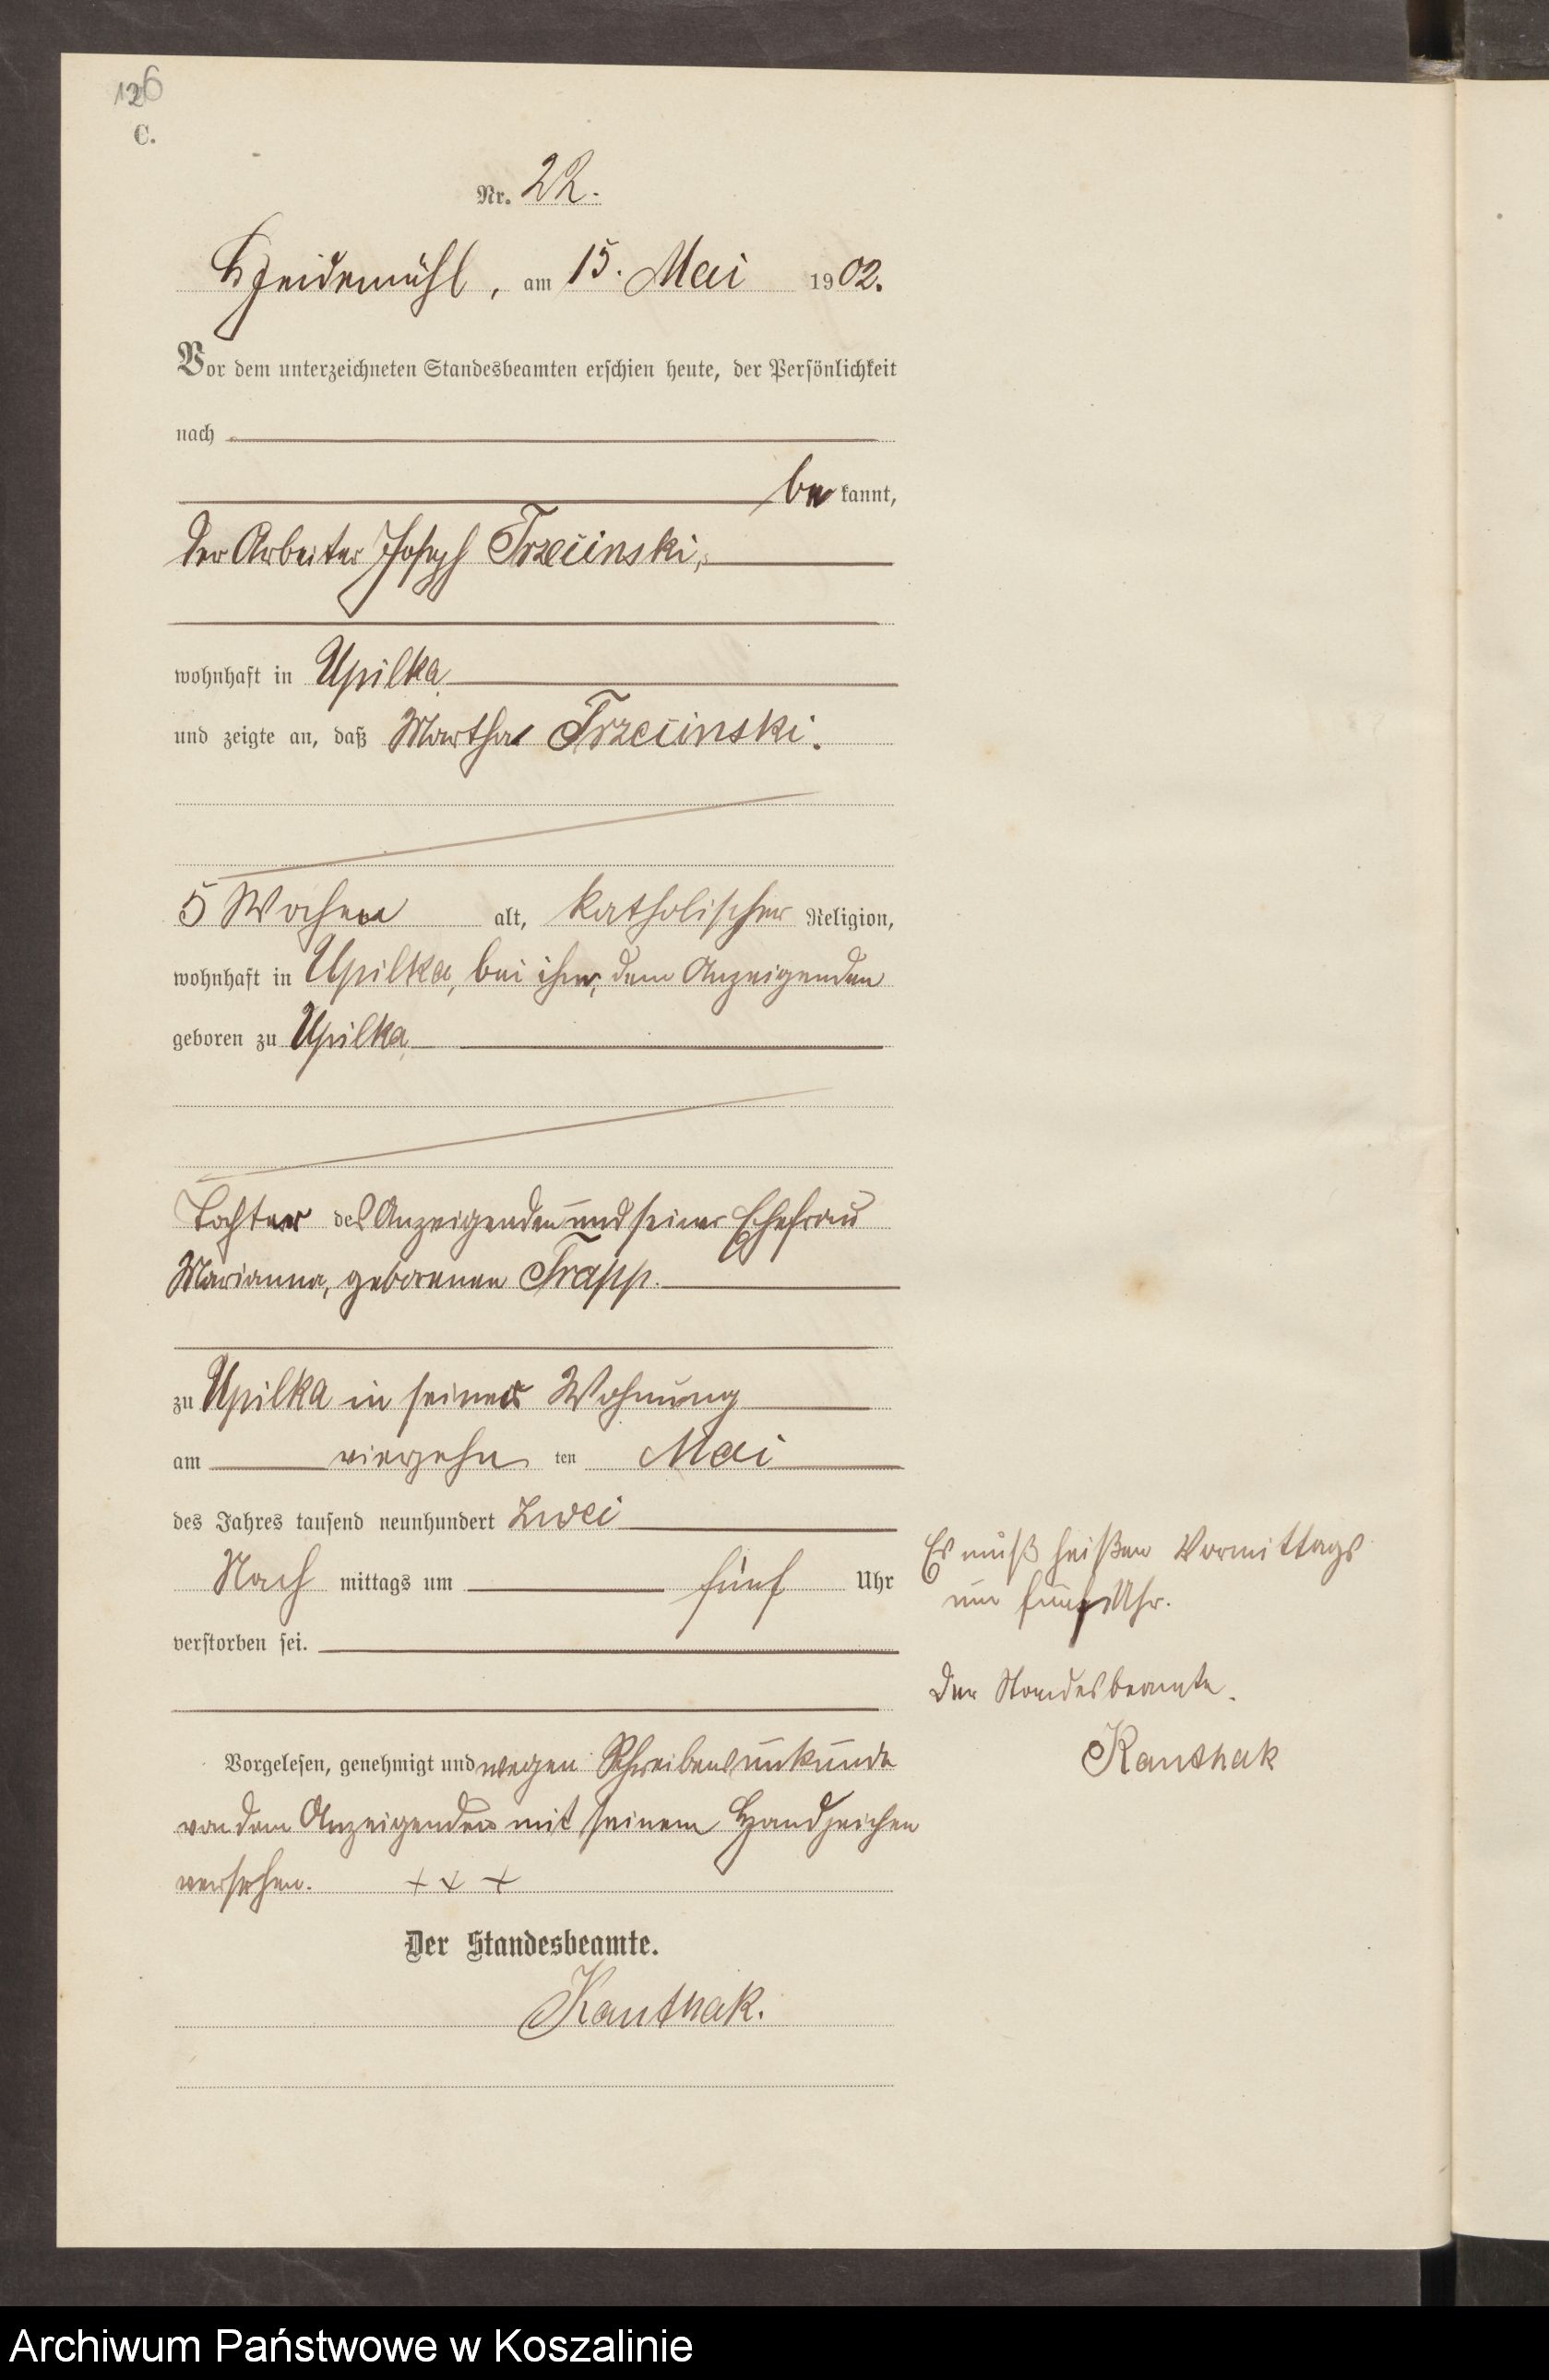 126
C.
Nr. 22.
Heidemühl, am 15. Mai 1902.
Vor dem unterzeichneten Standesbeamten erschien heute, der Persönlichkeit
nach
be kannt,
der Arbeiter Joseph Trzeiinski,
wohnhaft in Upilka
und zeigte an, daß Martha Trzeiinski.
5 Wochen alt, katholischer Religion,
wohnhaft in Upilka, bei ihm, dem Anzeigenden
geboren zu Upilka
Tochter des Anzeigenden und seiner Ehefrau
Marianna, geborenen Trapp.
zu Upilka in seiner Wohnung
am vierzehn ten Mai
des Jahres tausend neunhundert zwei
Nach mittags um fünf Uhr
verstorben sei.
Es muß heißen Vormittags
um fünf Uhr.
Der Standesbeamte.
Kanthak
Vorgelesen, genehmigt und wegen Schreibensunkunde
von dem Anzeigenden mit seinem Handzeichen
versehen. + + +
Der Standesbeamte.
Kanthak.
Archiwum Państwowe w Koszalinie